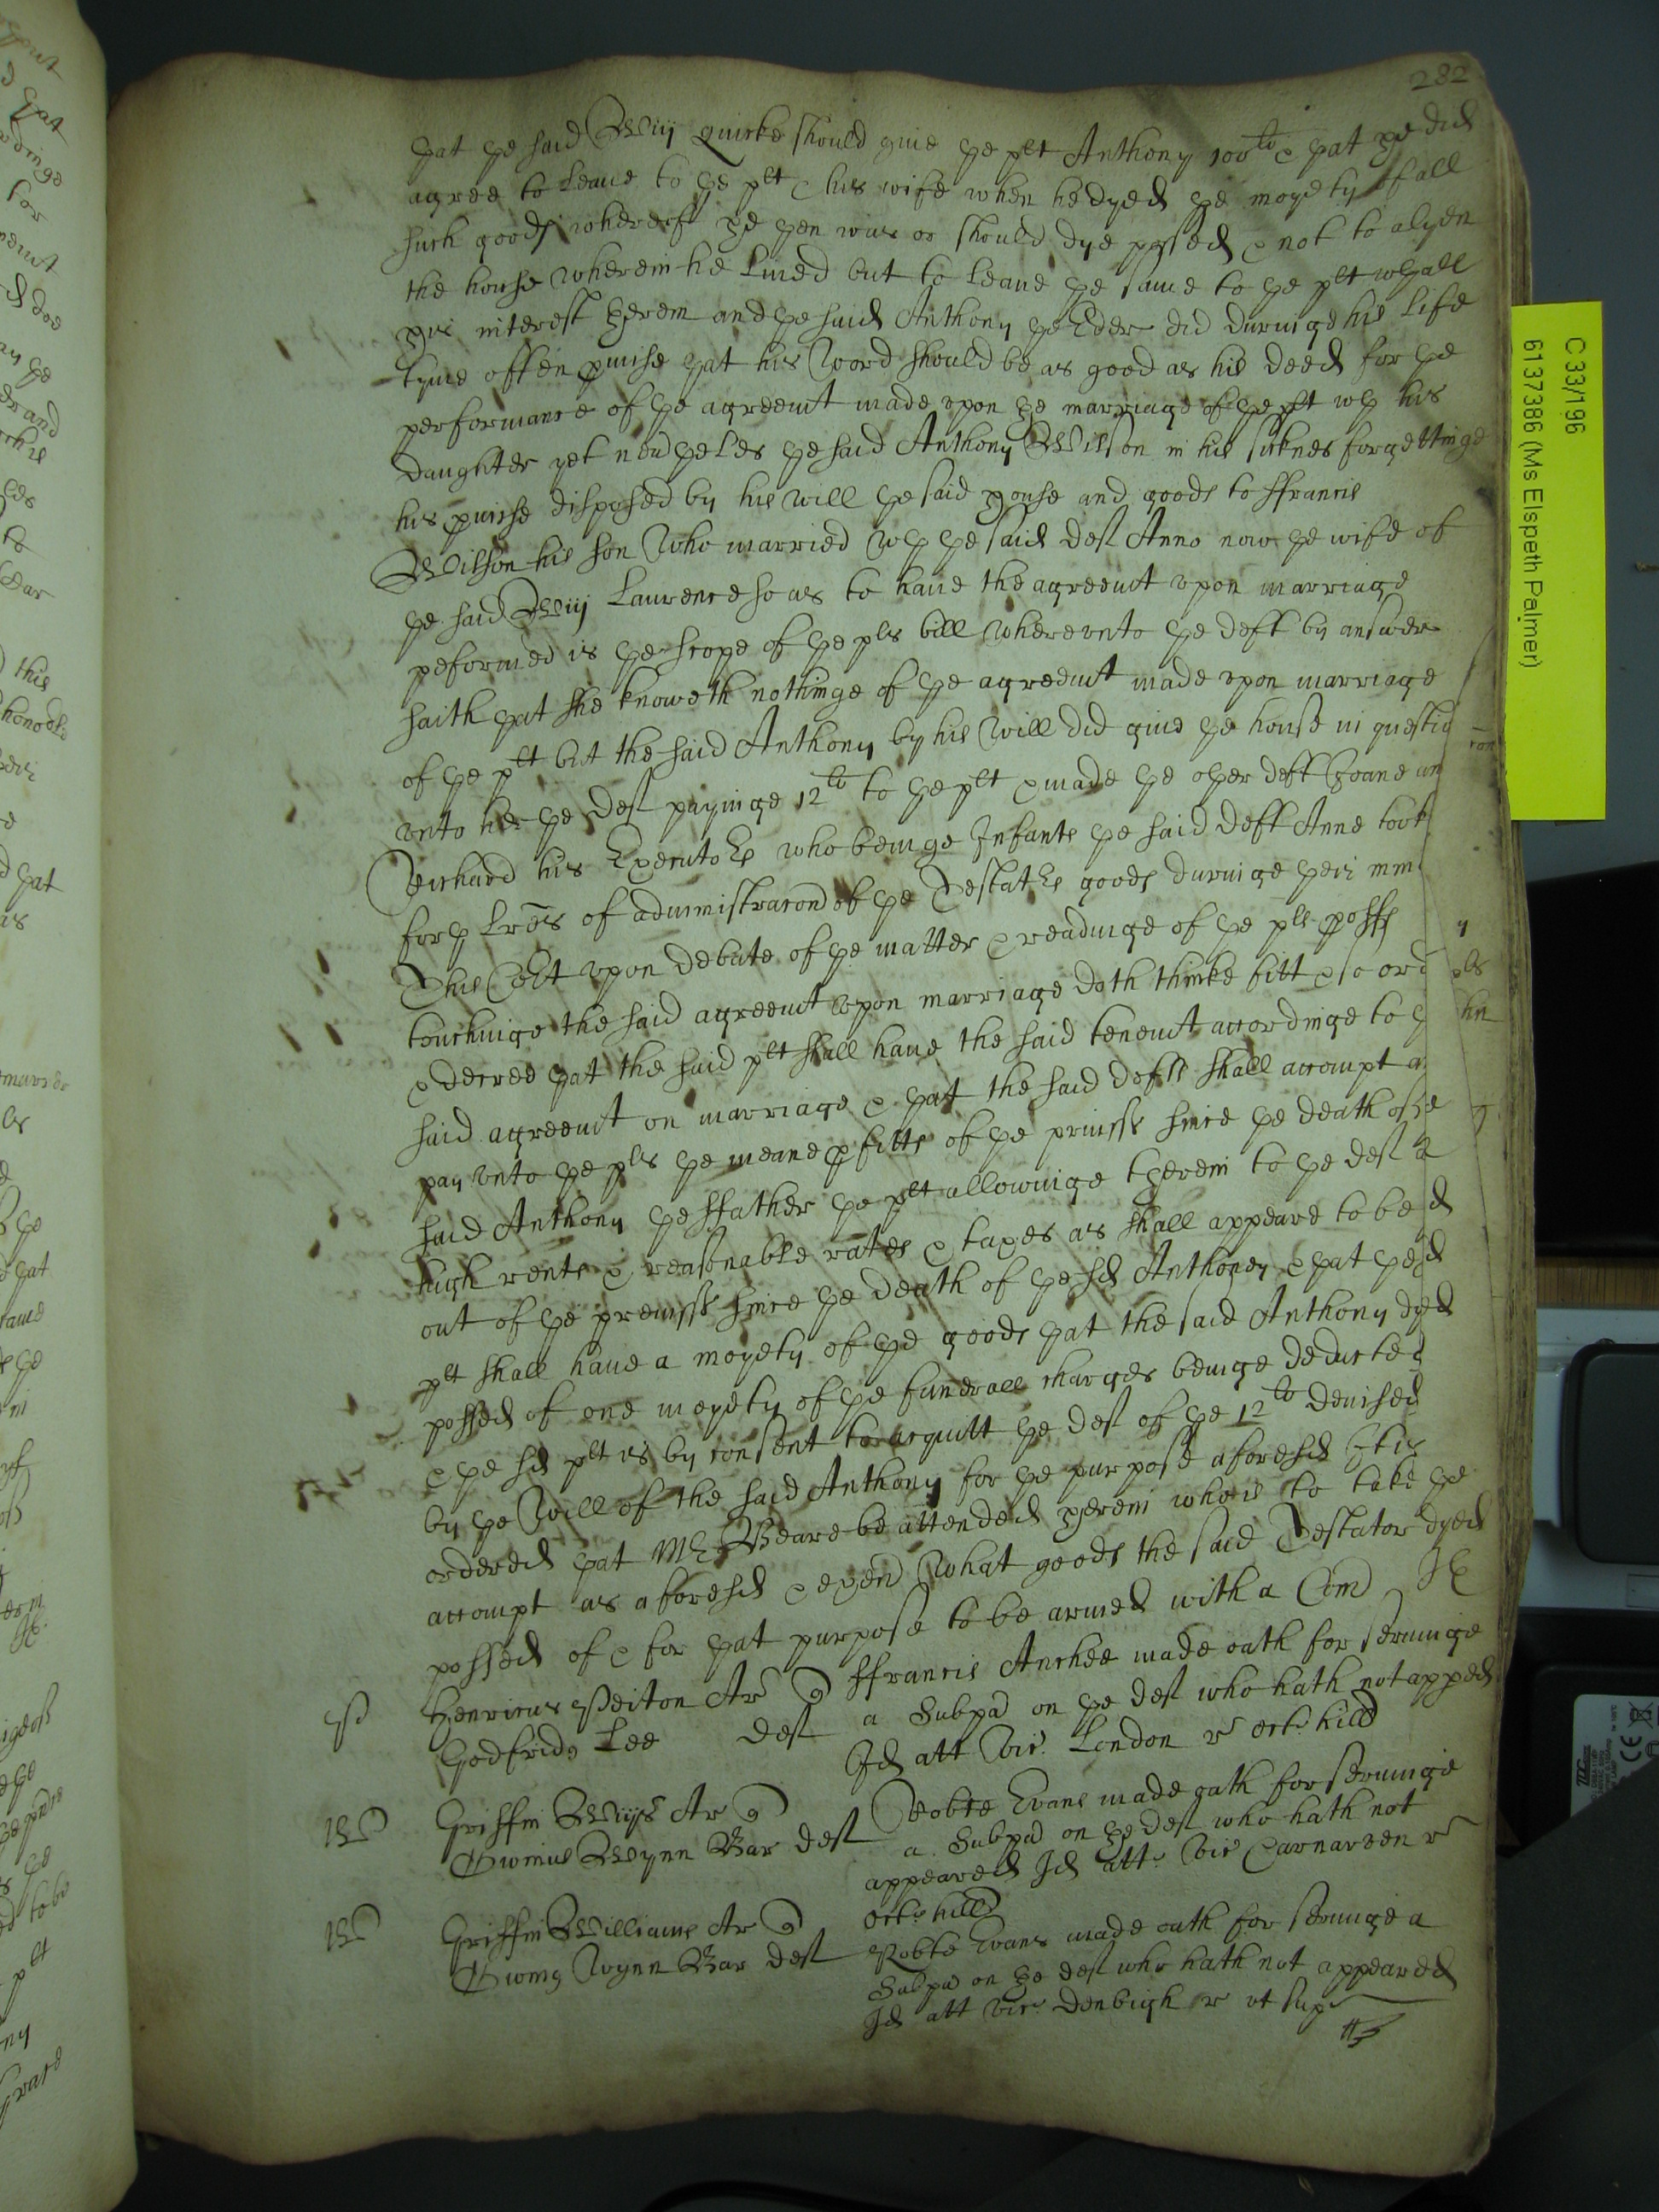 282
yat ye said Willm Quirke should giue ye plt Anthony 100li & yat he did
agree to leaue to ye plt & his wife when he dyed ye moyety of all
such goods whereof he yen was or should dye possed & not to alyen
the house wherein he liued but to leaue ye same to ye plt wth all
his interest yerein and ye said Anthony ye Elder did duringe his life
tyme often pmise yat his Word should be as good as his deed for ye
performance of ye agreemt made vpon ye marriage of ye plt wth his
daughter yet neuyeles ye said Anthony Wilson in his siknes forgettinge
his pmise disposed by his will ye said house and goods to ffrancis
Wilson his son Who married wth ye said deft Anne now ye wife of
ye said Willm Laurence so as to haue the agreemt vpon marriage
peformed is ye scope of ye pls bill wherevnto ye deft by answer
saith yat she knoweth nothinge of ye agreemt made vpon marriage
of ye plt but the said Anthony by his Will did giue ye house in questio
vnto her ye deft payinge 12li to ye plt & made ye oyer deft Joane an
Richard his Executors who beinge Infants ye said deft Anne took
forth lres of administracon of ye Testators goods duringe yeir min
This Court vpon debate of ye matter & readinge of ye pls proffs
touchinge the said agreemt vpon marriage doth thinke fitt & so ord
& decree yat the said plt shall haue the said tenemt accordinge to y
said agreemt on marriage & yat the said defts shall accompt a
pay vnto ye pls ye meane pfitts of ye prmiss since ye death of ye
said Anthony ye ffather ye plt allowinge therein to ye deft a
such rents & reasonable rates & taxes as shall appeare to be
out of ye premiss since ye death of ye sd Anthoney & yat ye sd
plt shall haue a moyety of ye goods yat the said Anthony dyed
possed of one moyety of ye funerall charges beinge deducted
& ye sd plt is by consent to acquitt ye deft of ye 12li deuised
by ye Will of the said Anthony for ye purpose aforesd It is
ordered yat Mr Beare be attended yerein who is to take ye
accompt as aforesd & exen What goods the said Testator dyed
possed of & for yat purpose to be armed with a Com
Henricus Peiton Ar q
Godfrid9 Lee deft
ffrancis Anchee made oath for seruinge
a Subpa on ye deft who hath not apped
Id att Vic London r oct. hill
Griffin Willms Ar q
Owinus Wynn Bar deft
Robte Evans made oath for seruinge
a Subpa on ye deft who hath not
appeared Id att. Vic Carnarven r
oct. hill
Griffin Williams Ar q
Owing Wynn Bar deft
Robte Evans made oath for seruinge a
Subpa on ye deft who hath not appeared
Id att vic Denbigh r vt sup
C 33/196
6137386 (Ms Elspeth Palmer)